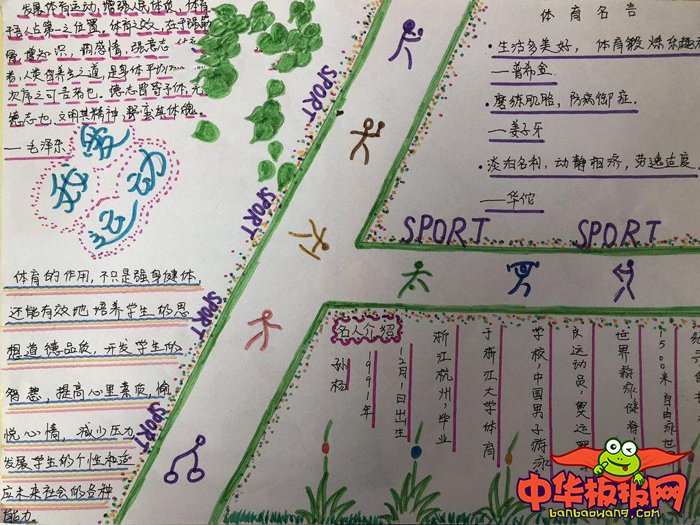 发展体育运动,增强人民体质,体育
于吾人占第一之位置,体育之效,在于强筋
骨,增知识,调感情,强意志
者,人类自养生之道,是身体平均
次序之可言者也。德志皆寄于体,无
德志也,文明其精神,野蛮其体魄。
——毛泽东
我爱
运动
体育的作用,不只是强身健体,
还能有效地培养学生的思
想道德品质,开发学生的
智慧,提高心里素质,愉
悦心情,减少压力
发展学生的个性和适
应未来社会的各种
能力
SPORT
SPORT
SPORT
SPORT
体育名言
·生活多美好,体育锻炼乐趣
——普希金
·磨练肌胎,防病御症.
——姜子牙
·淡泊名利,动静相济,劳逸适度.
——华佗
SPORT
SPORT
名人介绍
孙杨
1991年
12月1日出生
浙江杭州,毕业
于浙江大学体育
学校,中国男子游泳
运动员,奥运
世界游泳健将
1500米自由泳世
中华板报网
banbaowang.com